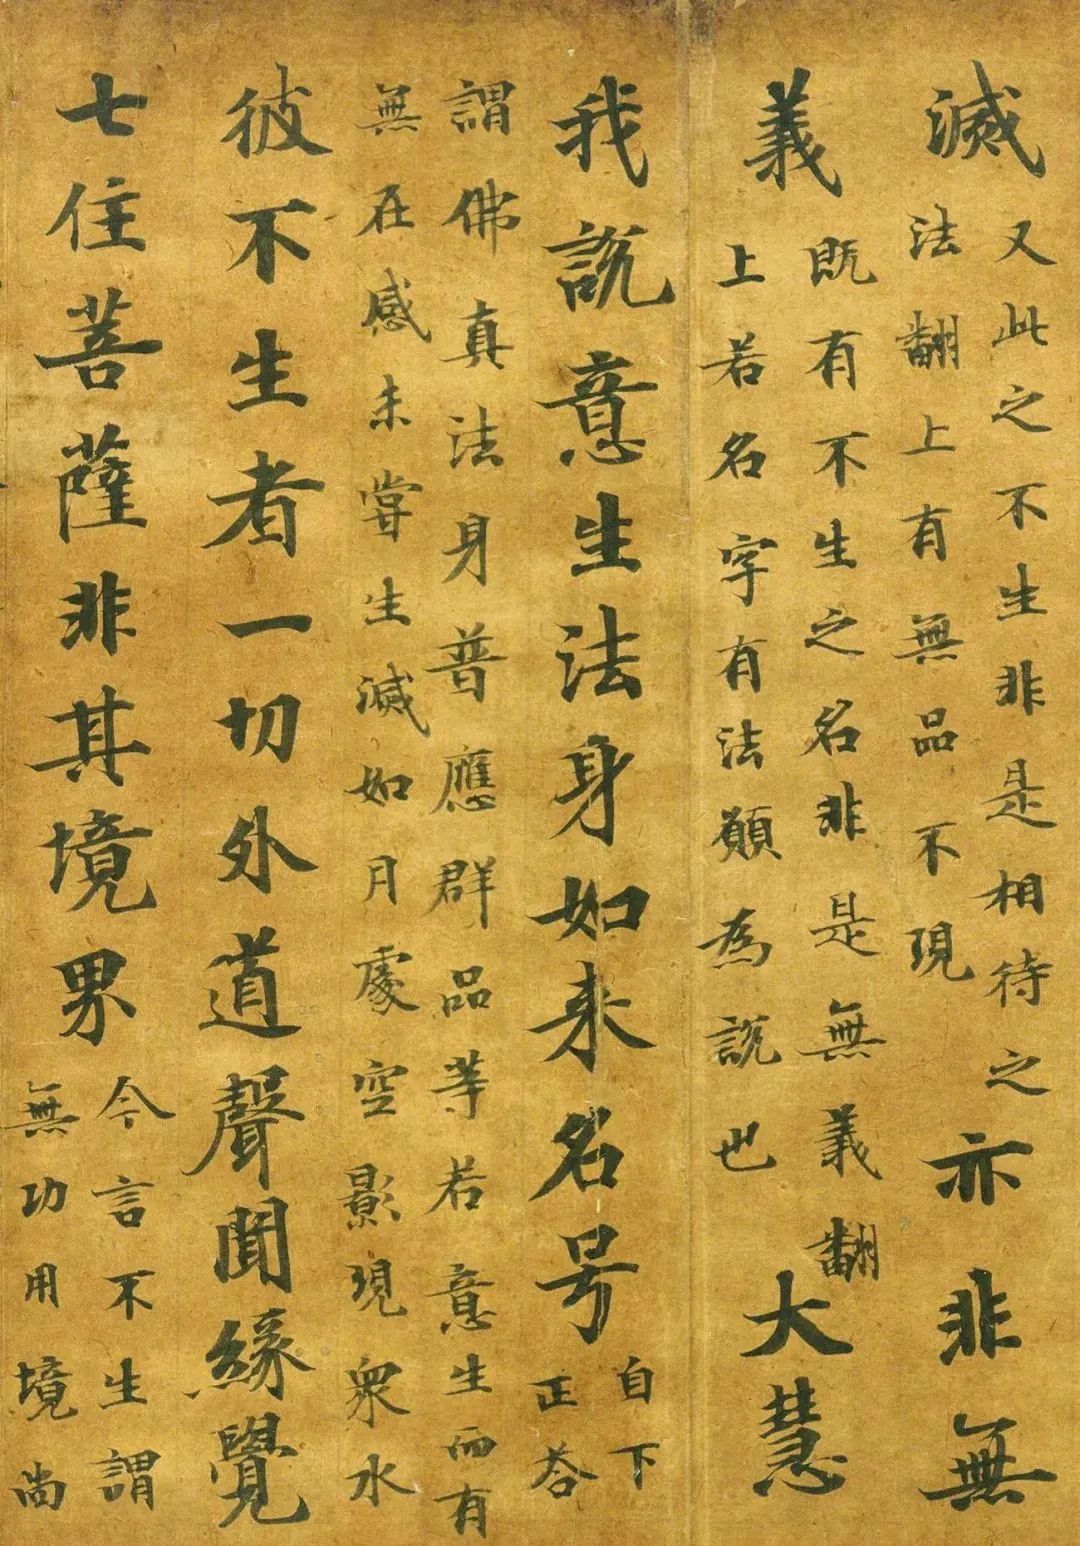 滅
又此之不生非是相待之
法翻上有無品不現
亦非無
義
既有不生之名非是無義翻
上若名字有法願為說也
大慧
我說意生法身如来名号
自下
正荅
謂佛真法身普應群品等若意生而有
無在感未嘗生滅如月處空影現衆水
彼不生者一切外道聲聞緣覺
七住菩薩非其境界
今言不生謂
無功用境尚